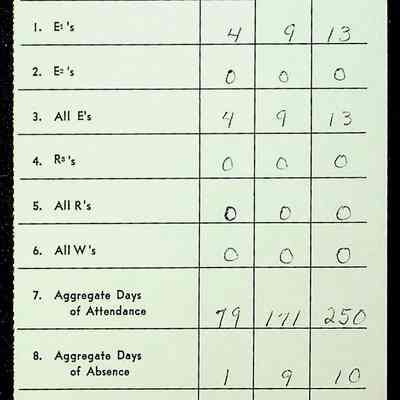 1. E¹'s 4 9 13
2. E²'s 0 0 0
3. All E's 4 9 13
4. R³'s 0 0 0
5. All R's 0 0 0
6. All W's 0 0 0
7. Aggregate Days
of Attendance 79 171 250
8. Aggregate Days
of Absence 1 9 10